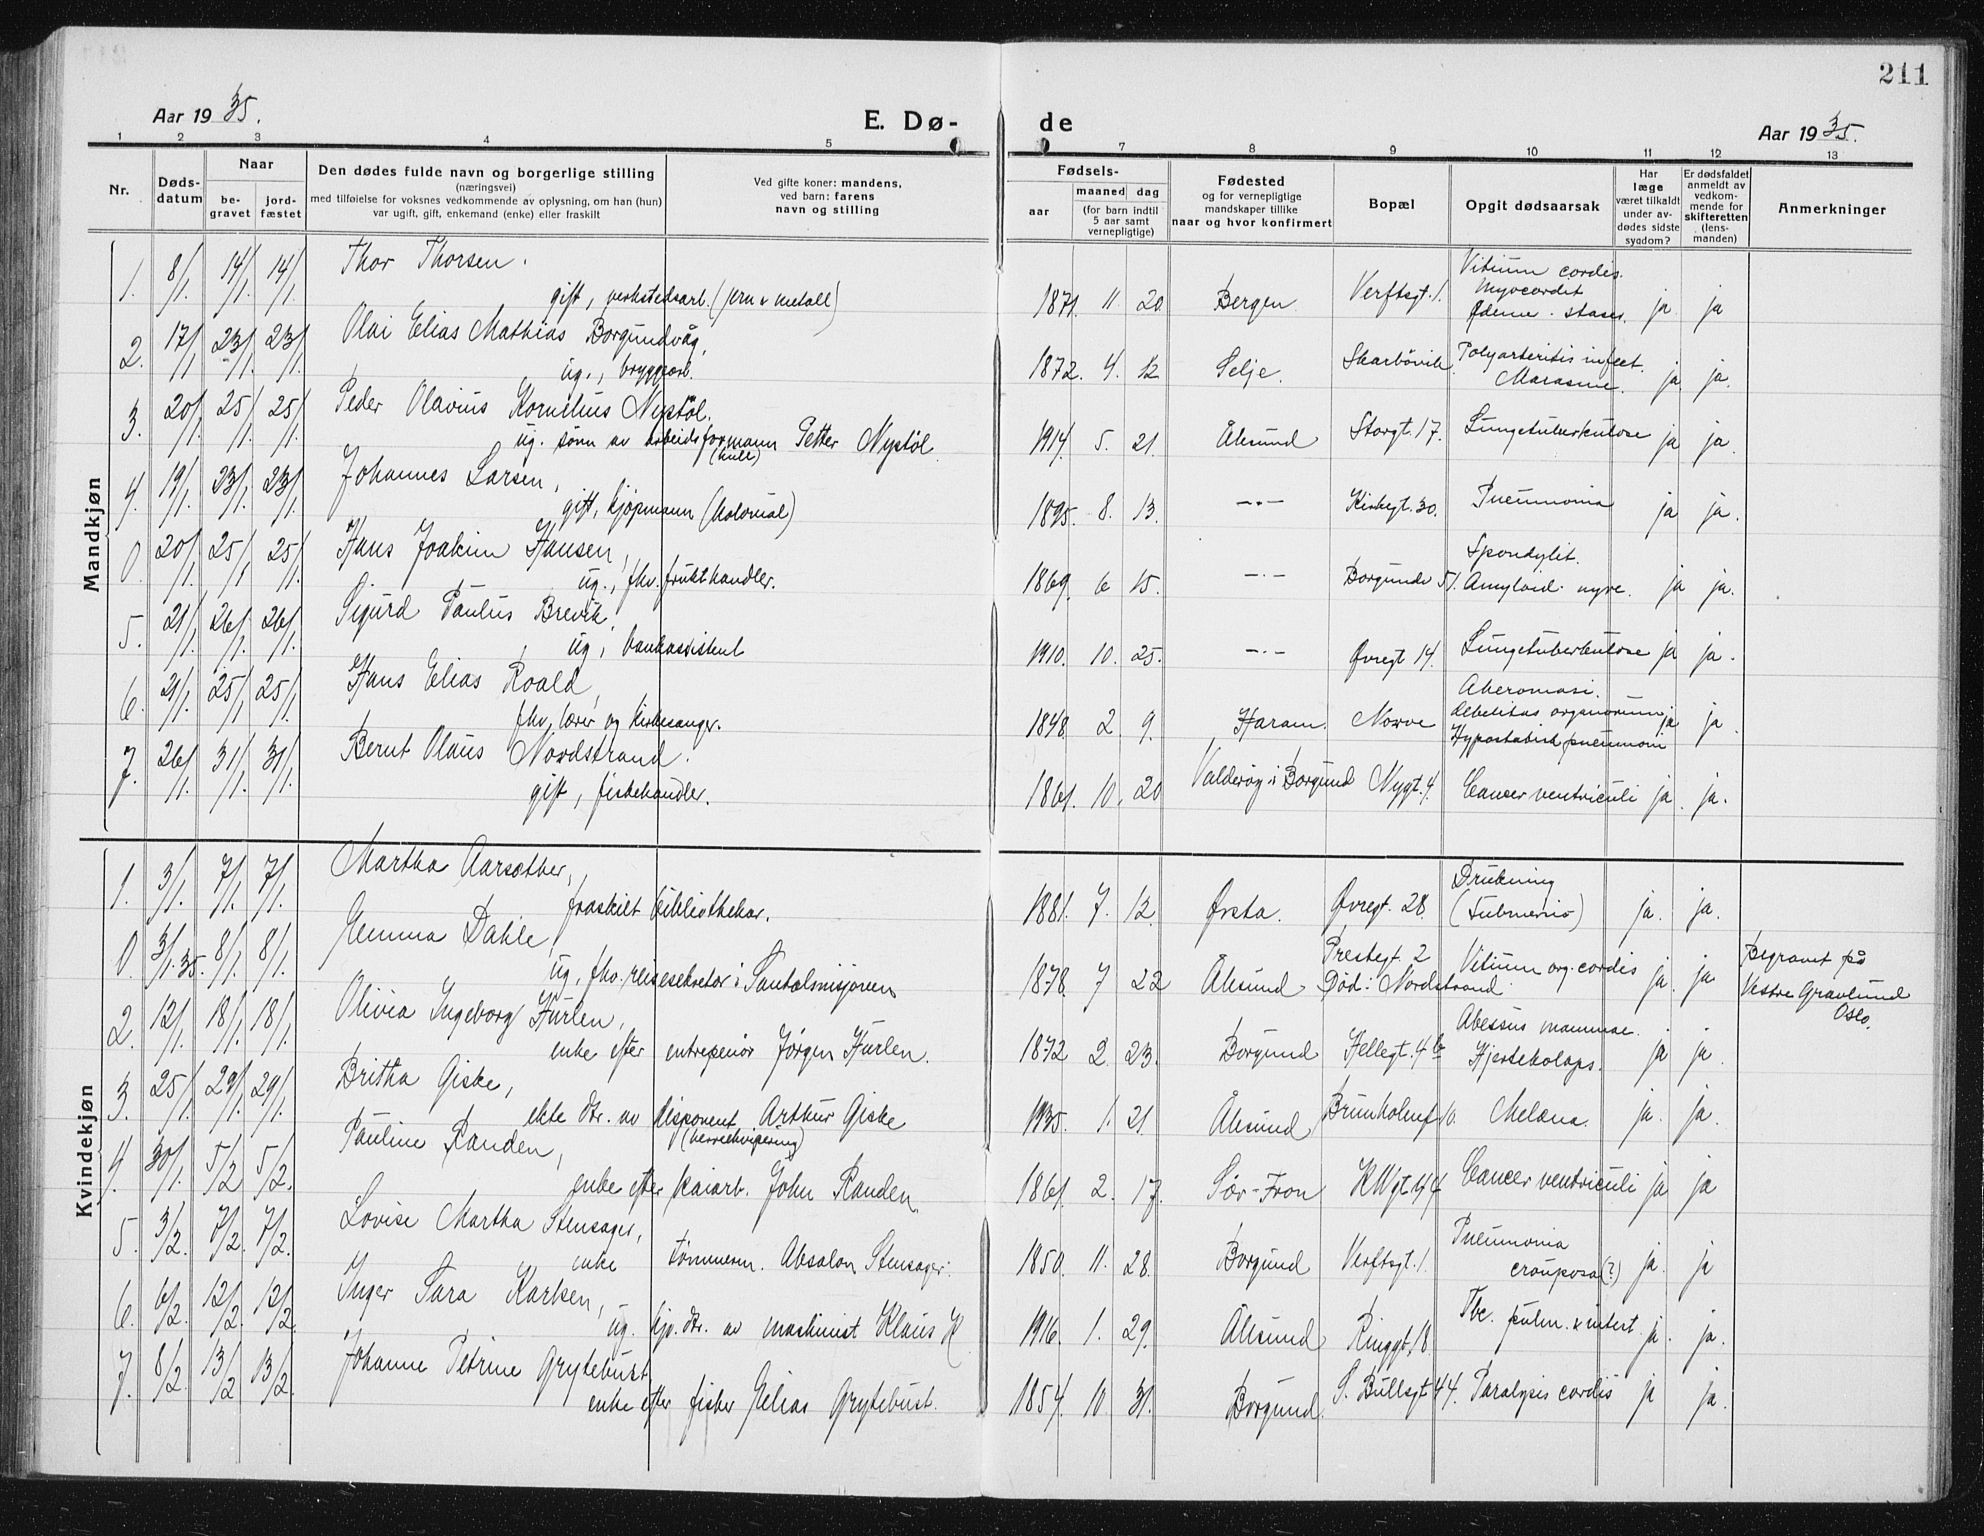 211
Aar 1935.
E. Dø-
de
Aar 1935.
1 2 3 4 5 7 8 9 10 11 12 13
Nr.
Døds-
datum
Naar
be-
gravet
jord-
fæstet
Den dødes fulde navn og borgerlige stilling
(næringsvei)
med tilføielse for voksnes vedkommende av oplysning, om han (hun)
var ugift, gift, enkemand (enke) eller fraskilt
Ved gifte koner: mandens,
ved barn: farens
navn og stilling
Fødsels-
aar
maaned dag
(for barn indtil
5 aar samt
vernepligtige)
Fødested
og for vernepligtige
mandskaper tillike
naar og hvor konfirmert
Bopæl
Opgit dødsaarsak
Har
læge
været tilkaldt
under av-
dødes sidste
sygdom?
Er dødsfaldet
anmeldt av
vedkom-
mende for
skifteretten
(lens-
manden)
Anmerkninger
Mandkjøn
1. 8/1 14/1 14/1 Thor Thorsen.
gift, verkstedsarb. (jern & metall) 1871. 11. 20. Bergen. Verftsgt. 1. Vitium cordis.
Myocardit
Ødeme. stases. ja. ja
2. 17/1 23/1 23/1 Olai Elias Mathias Borgundvåg,
ug., bryggearb. 1872. 4. 12. Selje. Skarbövik. Polyarteritis infect.
Marasme. ja ja.
3. 20/1 25/1 25/1 Peder Olavius Kornelius Nystöl.
ug. sønn av arbeidsformann Petter Nystöl.
(kull) 1914. 5. 21. Ålesund Storgt. 17. Lungetuberkulose ja ja.
4. 19/1 23/1 23/1 Johannes Larsen,
gift, kjøpmann (kolonial) 1895. 8. 13. -"- Kirkegt. 30. Pneumonia ja ja.
0. 20/1 25/1 25/1 Hans Joakim Hansen,
ug., fhv. frukthandler. 1869. 6 15. -"- Borgundv 51. Spondylit.
Amyloid. nyre. ja ja.
5. 21/1 26/1 26/1 Sigurd Paulus Brevik,
ug, bankassistent 1910. 10. 25. -"- Øvregt 14. Lungetuberkulose ja ja.
6. 21/1 25/1 25/1 Hans Elias Roald,
fhv. lærer og kirkesanger. 1848. 2. 9. Haram. Nørve Aheromasi.
debelitas organorum
Hypostatisk pneumoni ja ja.
7. 26/1 31/1 31/1 Bernt Olaus Nordstrand.
gift, fiskehandler. 1861. 10. 20 Valderøy i Borgund Nygt. 4. Cancer ventriculi ja. ja.
Kvindekjøn
1. 3/1 7/1 7/1 Martha Aarsæther,
fraskilt bibliothekar. 1881. 7. 12. Ørsta. Øvregt. 28. Drukning
(Submersio) ja. ja.
0. 3/1.35. 8/1 8/1 Hemma Dahle,
ug., fhv. reisesekretær i Santalmisjonen 1878. 7 22 Ålesund Prestegt. 2
Död: Nordstrand Vitium org. cordis ja. ja Begravet på
Vestre Gravlund
Oslo.
2. 12/1 18/1 18/1 Olivia Ingeborg Furlen,
enke efter entreprenør Jørgen Furlen. 1872 2. 23. Borgund Hellegt. 4 b Abessus mammae.
Hjertekolaps. ja ja.
3. 25/1 29/1 29/1 Britha Giske,
ekte dtr. av disponent Arthur Giske
(herreekvipering) 1935. 1. 21. Ålesund Brunholmgt 10. Melæna. ja. ja.
4. 30/1 5/2 5/2. Pauline Randen,
enke efter kaiarb. John Randen. 1861. 2. 17. Sør-Fron Cancer ventriculi ja ja
5. 3/2. 7/2. 7/2. Lovise Martha Stensager,
enke tømmerm. Absalon Stensager. 1850. 11. 28. Borgund Verftsgt. 1. Pneumonia
crouposa (?) ja. ja
6. 6/2. 12/2. 12/2. Inger Sara Karlsen,
ug. kjv. dtr. av maskinist Klaus K. 1916. 1. 29. Ålesund Ringgt. 18. Tbc. pulm. & intest. ja. ja.
7. 8/2. 13/2 13/2. Johanne Petrine Grytebust
enke efter fisker Helias Grytebust. 1854. 10. 31. Borgund. S. Bullsgt 44. Paralysis cordis ja ja.